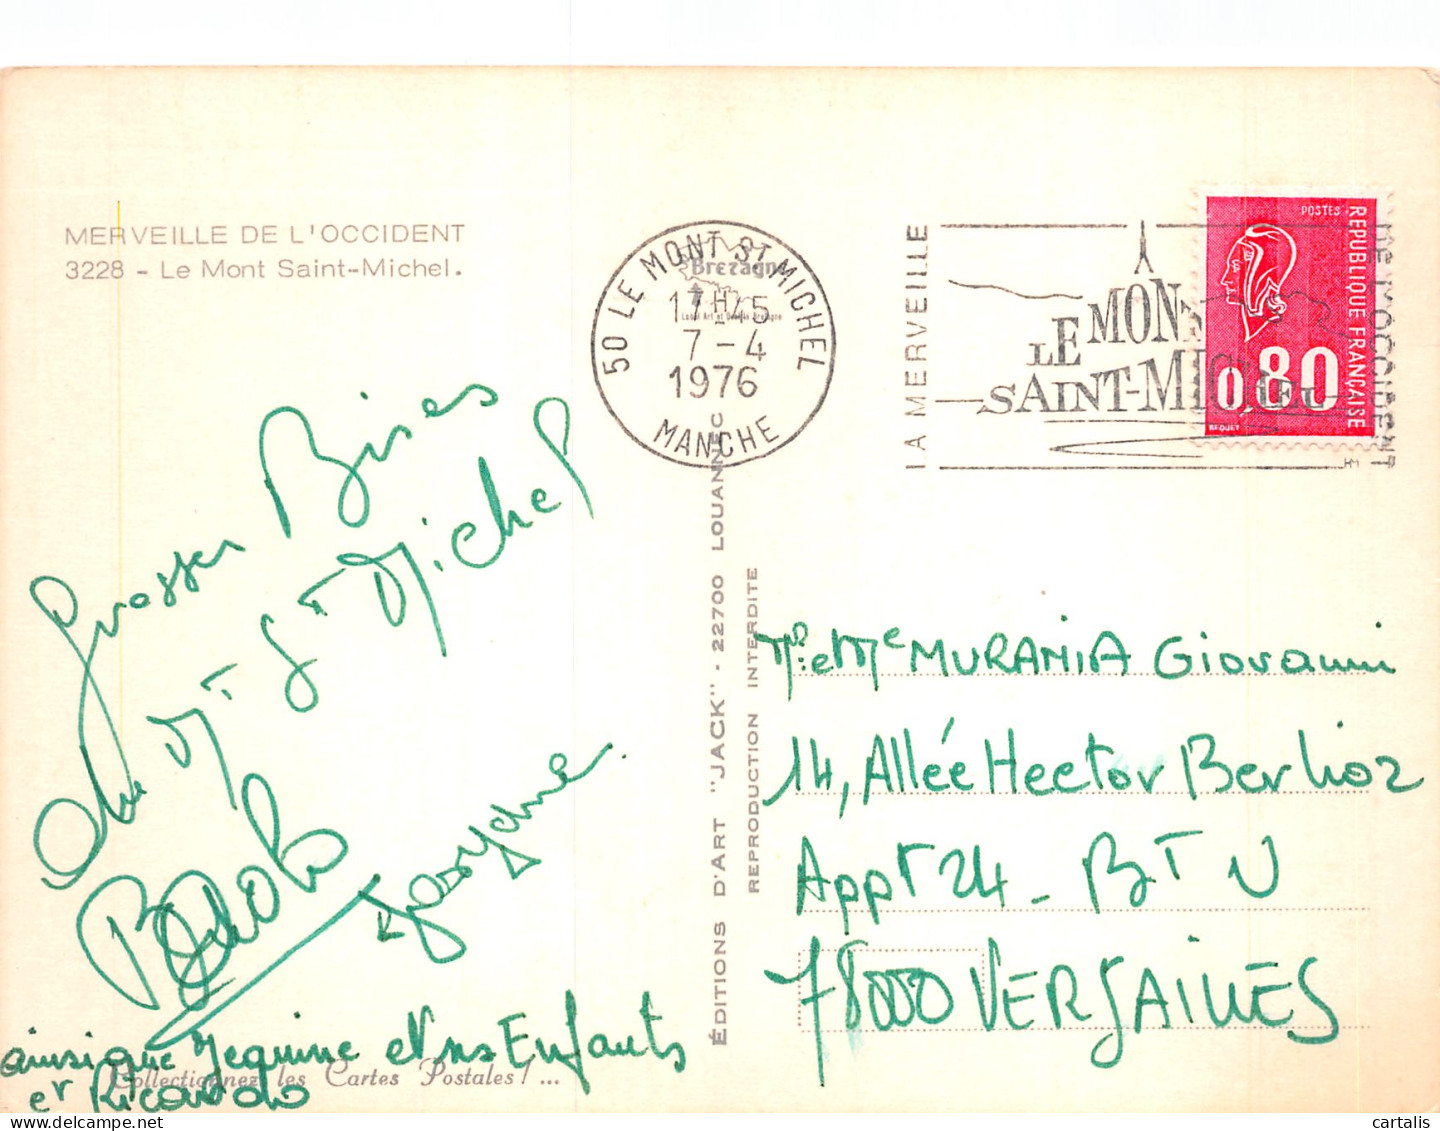 MERVEILLE DE L'OCCIDENT
3228 - Le Mont Saint-Michel.
Grosses Bises
du Mt St Michel
Jocelyne
ainsi que Jeanine et nos Enfants
et Ricardo
Collectionnez les Cartes Postales ! ...
ÉDITIONS D'ART "JACK" - 22700 LOUANNEC
REPRODUCTION INTERDITE
Bretagne
50 LE MONT ST MICHEL
17H45
7-4
1976
MANCHE
LA MERVEILLE
LE MONT
SAINT-MICHEL
DE L'OCCIDENT
POSTES
REPUBLIQUE FRANÇAISE
0,80
BEQUET
Mr. et Me MURANIA Giovanni
14, Allée Hector Berlioz
Appt 24 - BT U
78000 VERSAILLES
cartalis
delcampe.net